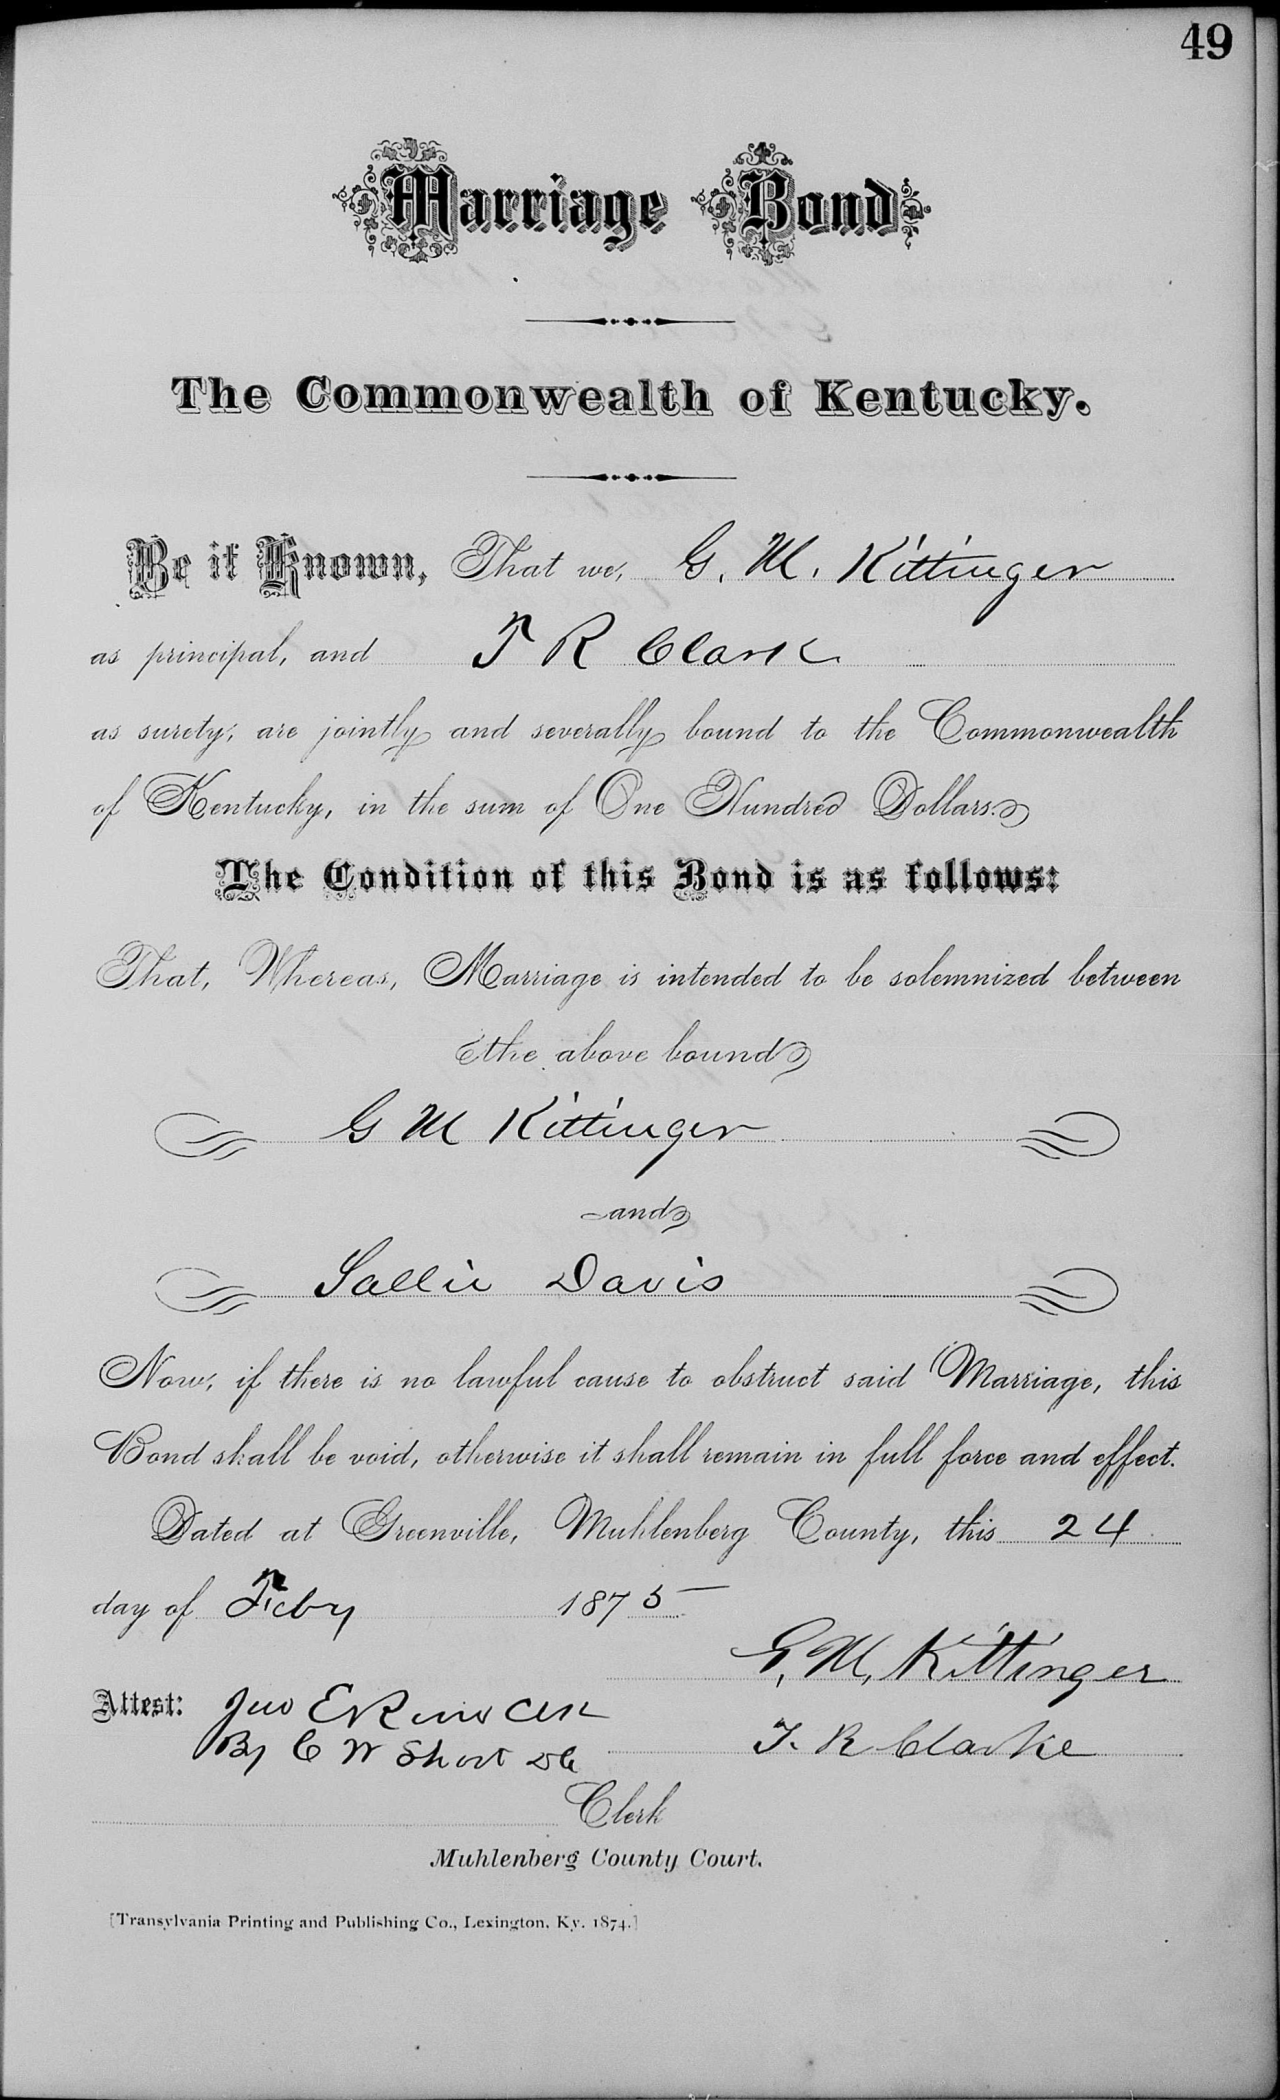 49
Marriage Bond
The Commonwealth of Kentucky.
Be it Known, That we, G. M. Kittinger
as principal, and T R Clark
as surety, are jointly and severally bound to the Commonwealth
of Kentucky, in the sum of One Hundred Dollars.
The Condition of this Bond is as follows:
That, Whereas, Marriage is intended to be solemnized between
the above bound
G M Kittinger
and
Sallie Davis
Now, if there is no lawful cause to obstruct said Marriage, this
Bond shall be void, otherwise it shall remain in full force and effect.
Dated at Greenville, Muhlenberg County, this 24
day of Feby 1875
G. M. Kittinger
Attest: Jno E Reno Clk
By C W Short DC
T. R Clarke
Clerk
Muhlenberg County Court.
[Transylvania Printing and Publishing Co., Lexington, Ky. 1874.]